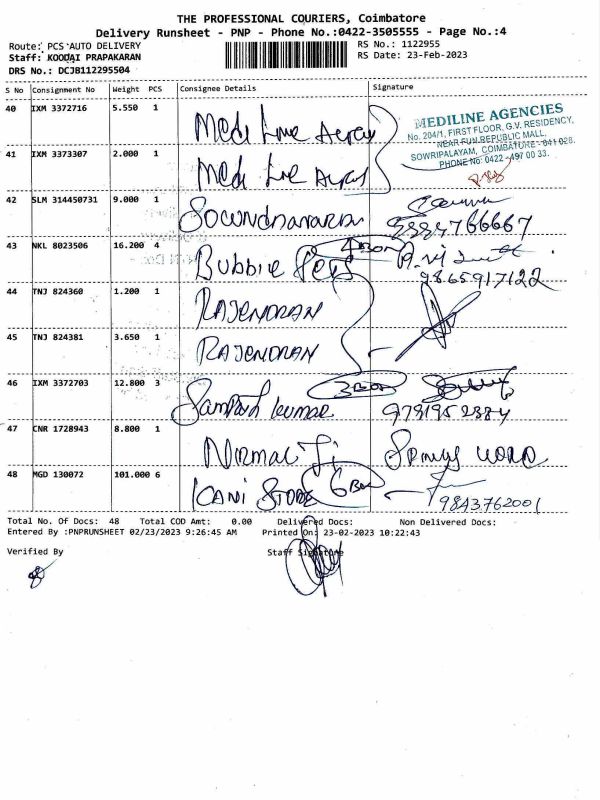 THE PROFESSIONAL COURIERS, Coimbatore
Delivery Runsheet - PNP - Phone No.:0422-3505555 - Page No.:4
Route: PCS AUTO DELIVERY
RS No.: 1122955
Staff: KOODAI PRAPAKARAN
RS Date: 23-Feb-2023
DRS No.: DCJB112295504
S No Consignment No Weight PCS Consignee Details Signature
40 IXM 3372716 5.550 1 Medi Line
MEDILINE AGENCIES
No. 204/1, FIRST FLOOR, G.V. RESIDENCY,
NEAR FUN REPUBLIC MALL,
SOWRIPALAYAM, COIMBATORE - 641 028.
PHONE No: 0422 - 497 00 33.
41 IXM 3373307 2.000 1 Medi Line
42 SLM 314450731 9.000 1
43 NKL 8023506 16.200 4 Bubbie Pets 4 Box
9865917122
44 TNJ 824360 1.200 1 RAJENDRAN
45 TNJ 824381 3.650 1 RAJENDRAN
46 IXM 3372703 12.800 3 Sampath Kumar 3 Box
47 CNR 1728943 8.800 1
48 MGD 130072 101.000 6 KANI STORE 6 Box
9843762001
Total No. Of Docs: 48 Total COD Amt: 0.00 Delivered Docs: Non Delivered Docs:
Entered By :PNPRUNSHEET 02/23/2023 9:26:45 AM Printed On: 23-02-2023 10:22:43
Verified By Staff Signature